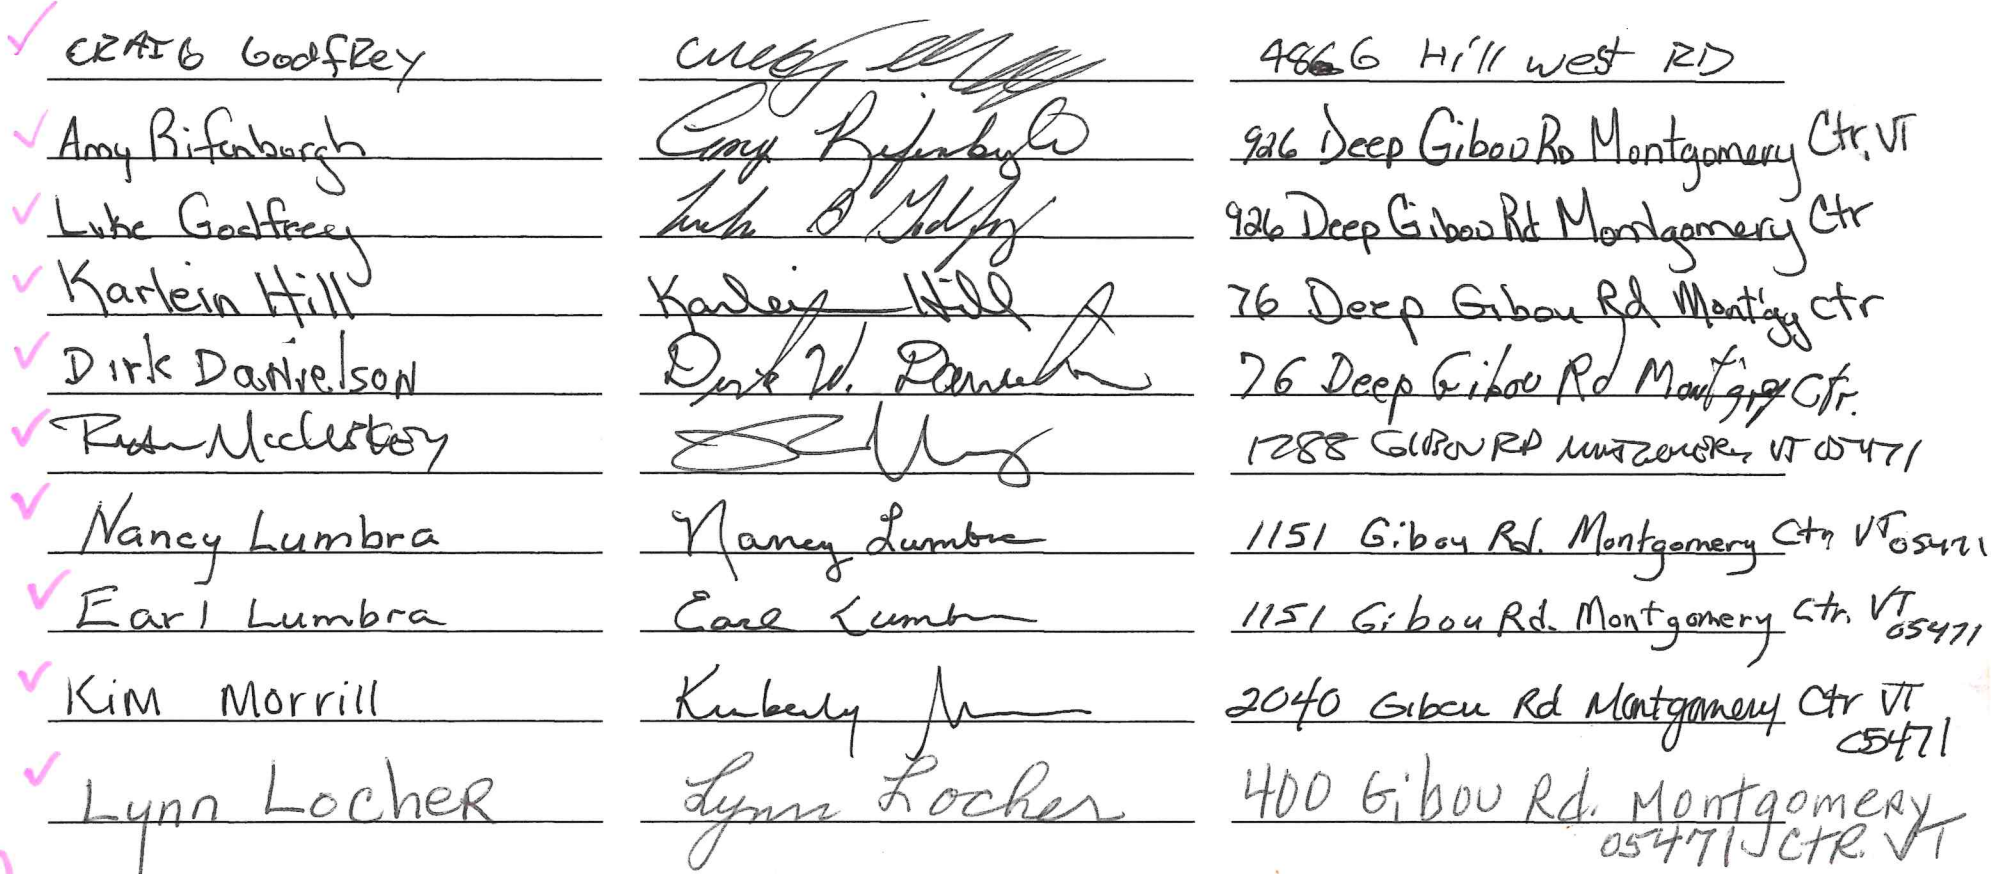 CRAIG Godfrey 4866 Hill west RD
Amy Rifenburgh Amy Rifenburgh 926 Deep Gibou Rd Montgomery Ctr. VT
Luke Godfreey Luke Godfrey 926 Deep Gibou Rd Montgomery Ctr
Karlein Hill Karlein Hill 76 Deep Gibou Rd Mont'gy ctr
Dirk Danielson Dirk W. Danielson 76 Deep Gibou Rd Montg'ry Ctr.
McCluskey 1288 GIBOU RD MONTGOMERY VT 05471
Nancy Lumbra Nancy Lumbra 1151 Gibou Rd. Montgomery Ctr VT 05471
Earl Lumbra Earl Lumbra 1151 Gibou Rd. Montgomery Ctr. VT 05471
Kim Morrill Kimberly 2040 Gibou Rd Montgomery Ctr VT 05471
Lynn Locher Lynn Locher 400 Gibou Rd. Montgomery
05471 CTR VT